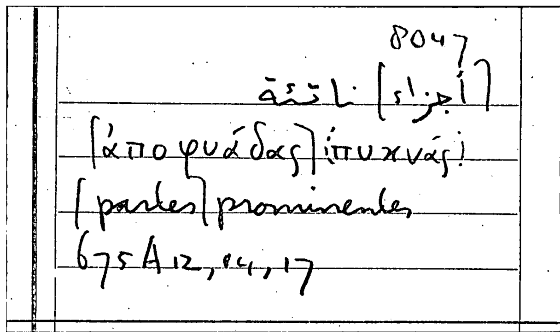 8047
[أجزاء] ناتئة
[ἀποφυάδας] ⁝πυκνάς⁝
[partes] prominentes
675A12, 14, 17